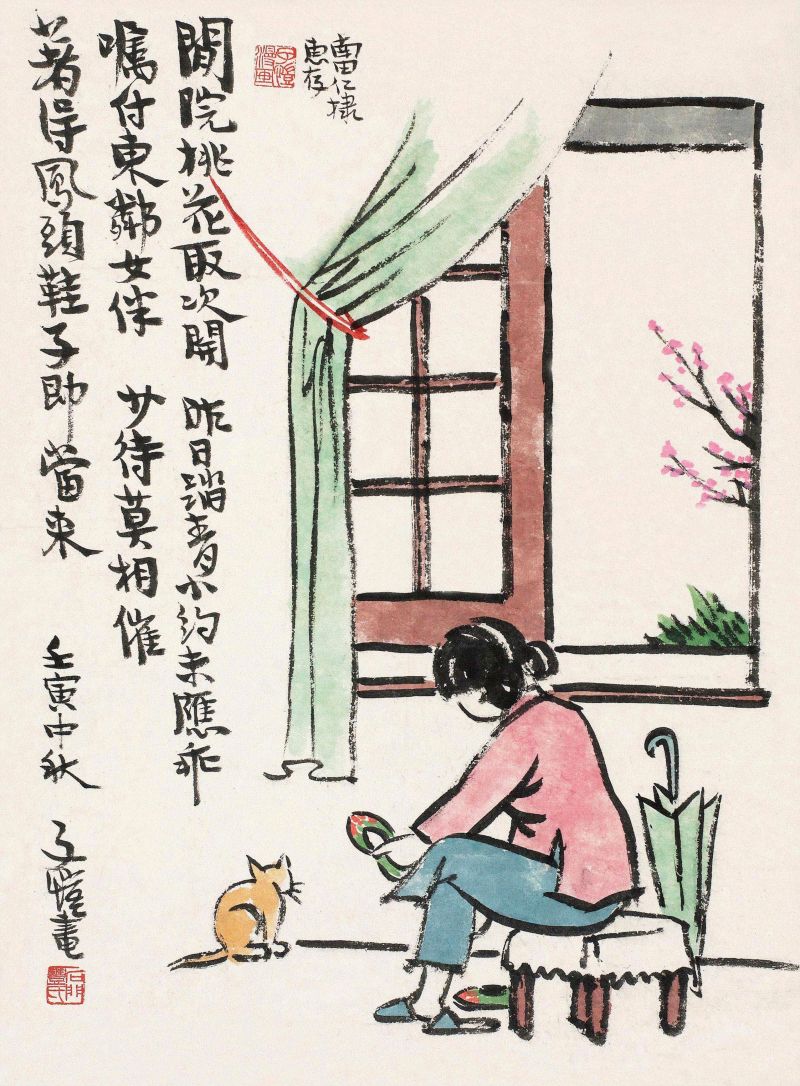 仁棣
惠存
子愷漫畫
閒院桃花取次開 昨日踏青小約未應乖
嘱付東鄰女伴 少待莫相催
著得鳳頭鞋子即當來
壬寅中秋 子愷畫
石門豐氏